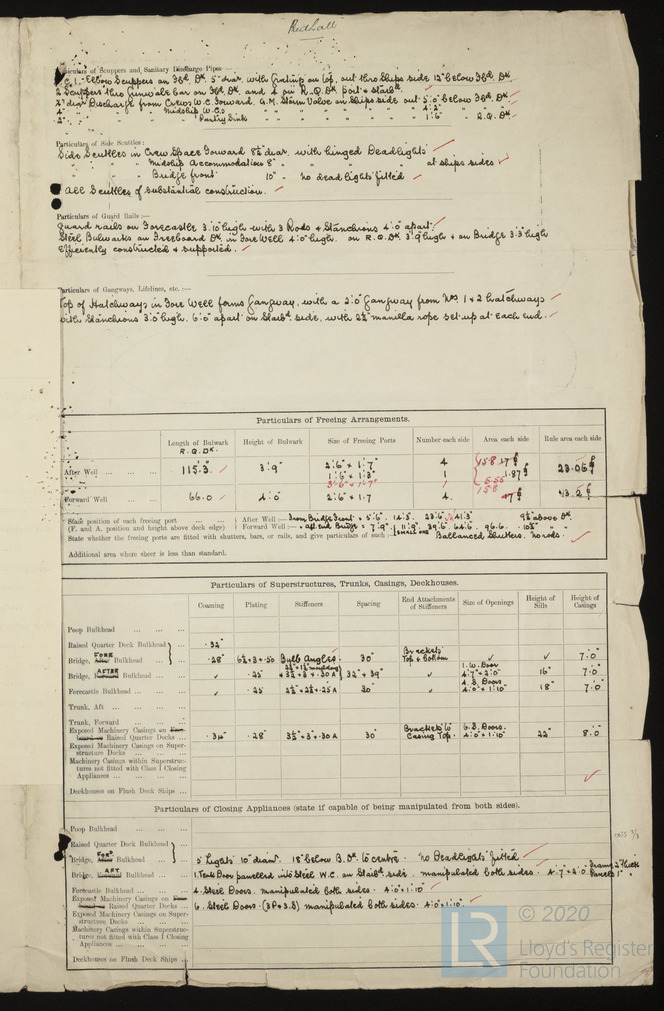 Redhall
Particulars of Scuppers and Sanitary Discharge Pipes —
Elbow Scuppers on Fbd. Dk. 5" diar. with Grating on top, out thro Ships side 12" below Fbd. Dk.
2 Scuppers thro Gunwale bar on Fbd. Dk. and 4 on R.Q. Dk. port & Starbd.
Discharge from Crews W.C. Forward. G.M. Storm Valve on Ships side out 5'.0" below Fbd. Dk.
4" " " Midship W.Cs " " " " " " 4'.2" " "
2" " " Pantry Sink " " " " " " 1'.6" " R.Q. Dk.
Particulars of Side Scuttles:—
Side Scuttles in Crew Space Forward 8½" diar. with hinged Deadlights
" " " Midship Accommodation 8" " " " " at ships sides
" " " Bridge front 10" " no dead lights fitted
All Scuttles of substantial construction.
Particulars of Guard Rails:—
Guard rails on Forecastle 3'.10" high with 3 Rods & Stanchions 4'.0" apart.
Steel Bulwarks on Freeboard Dk. in Fore Well 4'.0" high. on R.Q. Dk. 3'.9" high & on Bridge 3'.3" high
efficiently constructed & supported.
Particulars of Gangways, Lifelines, etc.:—
Top of Hatchways in Fore Well forms Gangway, with a 2'.0" Gangway from Nos. 1 & 2 hatchways
with Stanchions 3'.0" high. 6'.0" apart on Starbd. side, with 2½" manilla rope set up at each end.
Particulars of Freeing Arrangements.
Length of Bulwark Height of Bulwark Size of Freeing Ports Number each side Area each side Rule area each side
R.Q. Dk.
After Well 115.3 3'.9" 2'.6" × 1'.7" 4 15.8 23.06
1'.6" × 1'.3" 1 1.87
Forward Well 66.0 4'.0" 2'.6" × 1.7 4. 15.8
State position of each freeing port After Well:— From Bridge Front 5'.6" 14'.5" 23'.6" 41'.3" 9½" above Dk.
(F. and A. position and height above deck edge) Forward Well:— " aft. end Bridge 7'.9" 11'.9" 39'.6" 64'.6" 96.6. 10½" " "
State whether the freeing ports are fitted with shutters, bars, or rails, and give particulars of such:— Ballanced Shutters. no rods.
Additional area where sheer is less than standard.
Particulars of Superstructures, Trunks, Casings, Deckhouses.
Coaming Plating Stiffeners Spacing End Attachments of Stiffeners Size of Openings Height of Sills Height of Casings
Poop Bulkhead
Raised Quarter Deck Bulkhead .32"
Bridge, FORE Bulkhead .28" 6½ × 3 × .30 Bulb Angles. 30" Brackets Top & Bottom 7'.0"
Bridge, AFTER Bulkhead .25" 3½ × 3 × .30 A 32" & 39" I.W. Door 4'.7" × 2'.0" 16" 7'.0"
Forecastle Bulkhead .25 2½" × 2½ × .25 A 30" 4. S. Doors 4'.0" × 1'.10" 18" 7'.0"
Trunk, Aft
Trunk, Forward
Exposed Machinery Casings on Raised Quarter Decks .34" .28" 3½" × 3" × .30 A 30" Brackets to Casing Top. 6. S. Doors. 4'.0" × 1'.10" 22" 8.0
Exposed Machinery Casings on Superstructure Decks
Machinery Casings within Superstructures not fitted with Class I Closing Appliances
Deckhouses on Flush Deck Ships
Particulars of Closing Appliances (state if capable of being manipulated from both sides).
Poop Bulkhead
Raised Quarter Deck Bulkhead
Bridge, FORD Bulkhead 5 Lights 10" diar. 18" below B. Dk. to centre. no Deadlights fitted
Bridge, AFT Bulkhead 1. Teak Door panelled into Steel W.C. on Starbd. side. manipulated both sides. 4'.7" × 2.0. Frame 2" thick Panels 1" "
Forecastle Bulkhead 4. Steel Doors. manipulated both sides. 4'.0" × 1'.10"
Exposed Machinery Casings on Raised Quarter Decks 6. Steel Doors. (3P & 3S) manipulated both sides. 4'.0" × 1'.10".
Exposed Machinery Casings on Superstructure Decks
Machinery Casings within Superstructures not fitted with Class I Closing Appliances
Deckhouses on Flush Deck Ships
LR
© 2020
Lloyd's Register
Foundation